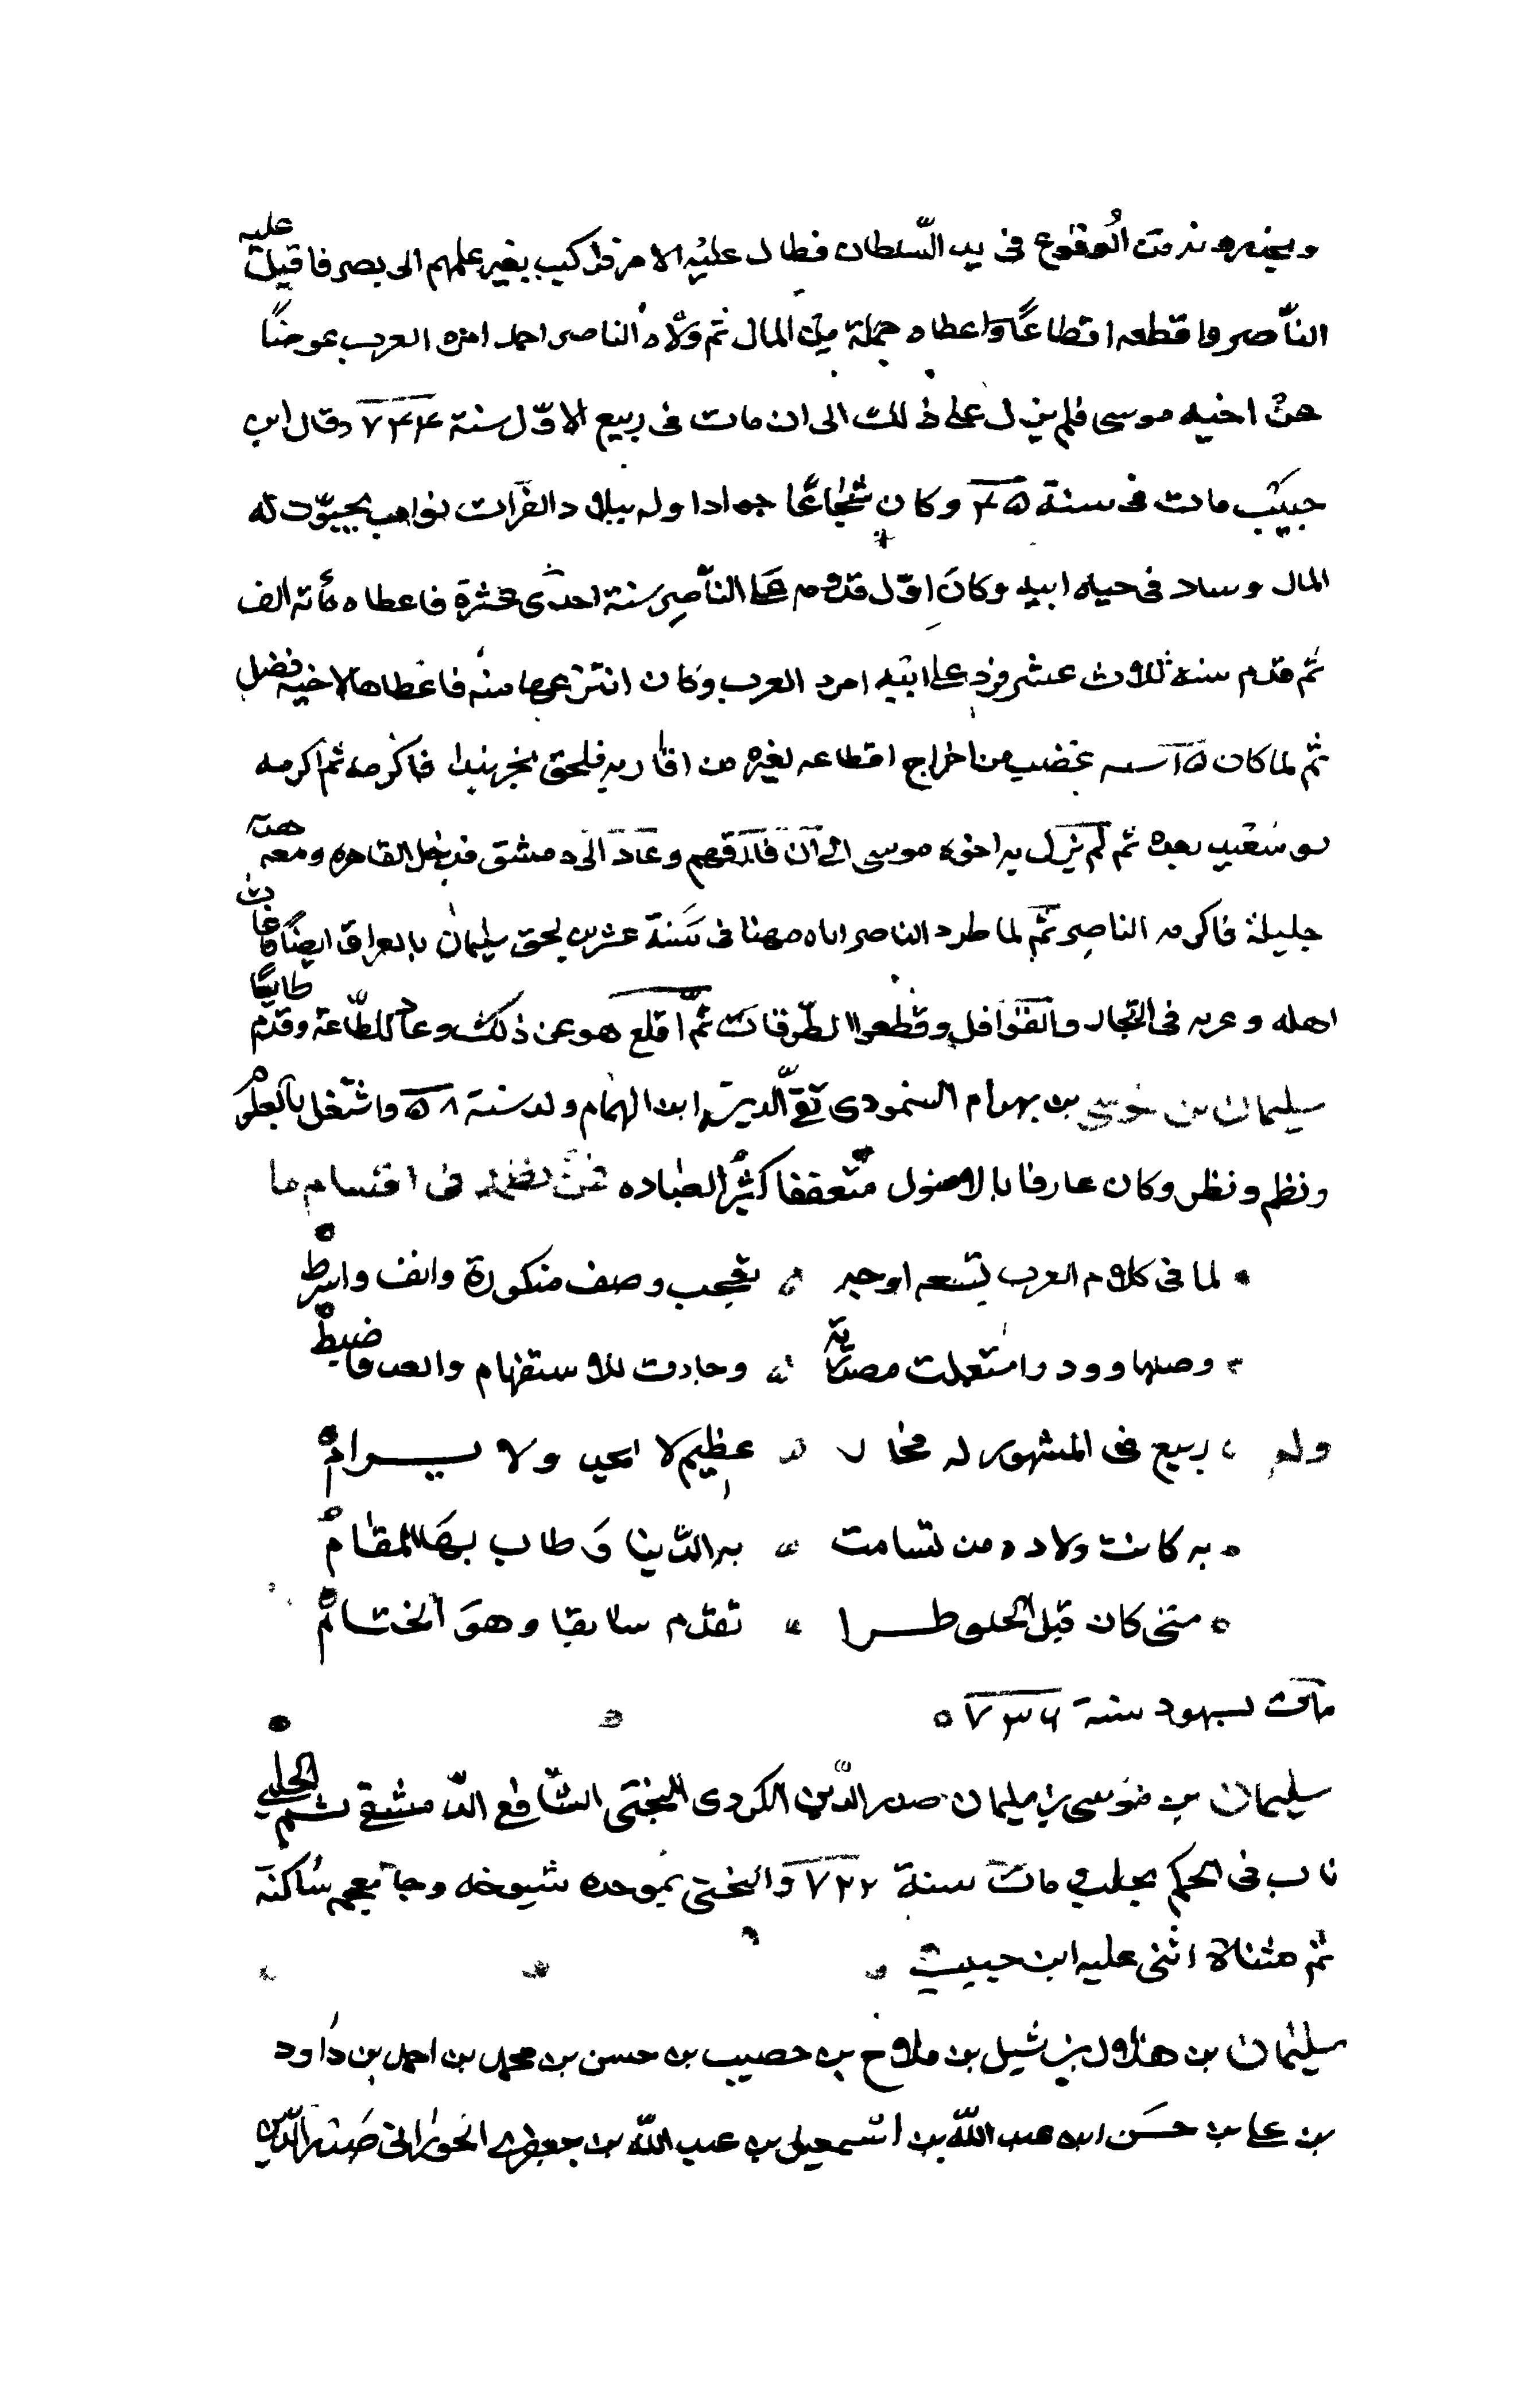 ويحذره من الوقوع في يد السلطان فطال عليه الامر فركب بغير علمهم الى مصر فاقبل عليه
الناصر واقطعه اقطاعًا واعطاه جملة من المال ثم ولّاه الناصر احمد امرة العرب عوضًا
عن اخيه موسى فلم يزل على ذلك الى ان مات في ربيع الاوّل سنة ٧٤٤ وقال ابن
حبيب مات في سنة ٤٥ وكان شجاعًا جوادا وله ببلاد الفرات نواب يجبون له
المال وساد في حياة ابيه وكان اوّل قدومه على الناصر سنة احدى عشرة فاعطاه مائة الف
ثم قدم سنة ثلاث عشر فرد على ابيه امرة العرب وكان انتزعها منه فاعطاها لاخيه فضل
ثم لما كان سنة ١٥ غضب من اخراج اقطاعه لغيره من اقاربه فلحق بخربندا فاكرمه ثم اكرمه
بو سعيد بعده ثم لم يزل به اخوه موسى الى ان فارقهم وعاد الى دمشق فدخل القاهرة ومعه هدية
جليلة فاكرمه الناصر ثم لما طرد الناصر اباه مهنا في سنة عشرين لحق سليمان بالعراق ايضًا وعاث
اهله وعربه في التجار والقوافل وقطعوا الطرقات ثم اقلع هو عن ذلك وعاد للطاعة وقدم طايعًا
سليمان بن موسى بن بهرام السمنودي تقي الدين ابن الهمام ولد سنة ٥٨ واشتغل بالعلم
ونظم ونظر وكان عارفا بالاصول متعففا كثير العبادة فمن نظمه في اقسام ما
لما في كلام العرب تسعه اوجه تعجب وصف منكورة وانف واشرط
وصلها وزد واستعملت مصدرية وجاءت للاستفهام والصد فاضبط
وله ربيع في المشهور له فخار عظيم لا يحد ولا يرام
به كانت ولادة من تسامت به الدنيا وطاب بها المقام
متى كان قبل الخلق طرا تقدم سابقا وهو الختام
مات بسمهود سنة ٧٣٦
سليمان بن موسى بن سليمان صدر الدين الكردي البختي الشافعي الدمشقي ثم الحلبي
ناب في الحكم بحلب ومات سنة ٧٢٢ والبختي بموحده شيوخه وخا معجمة ساكنة
ثم مثناة اثنى عليه ابن حبيب
سليمان بن هلال بن شبل بن فلاح بن خصيب بن حسن بن محمد بن احمد بن داود
بن علي بن حسن ابن عبد الله بن اسمعيل بن عبد الله بن جعفر الحوراني صدر الدين